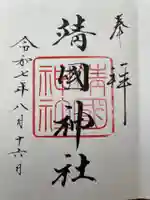 奉拝
靖國神社
令和七年八月十六月
靖國
神社